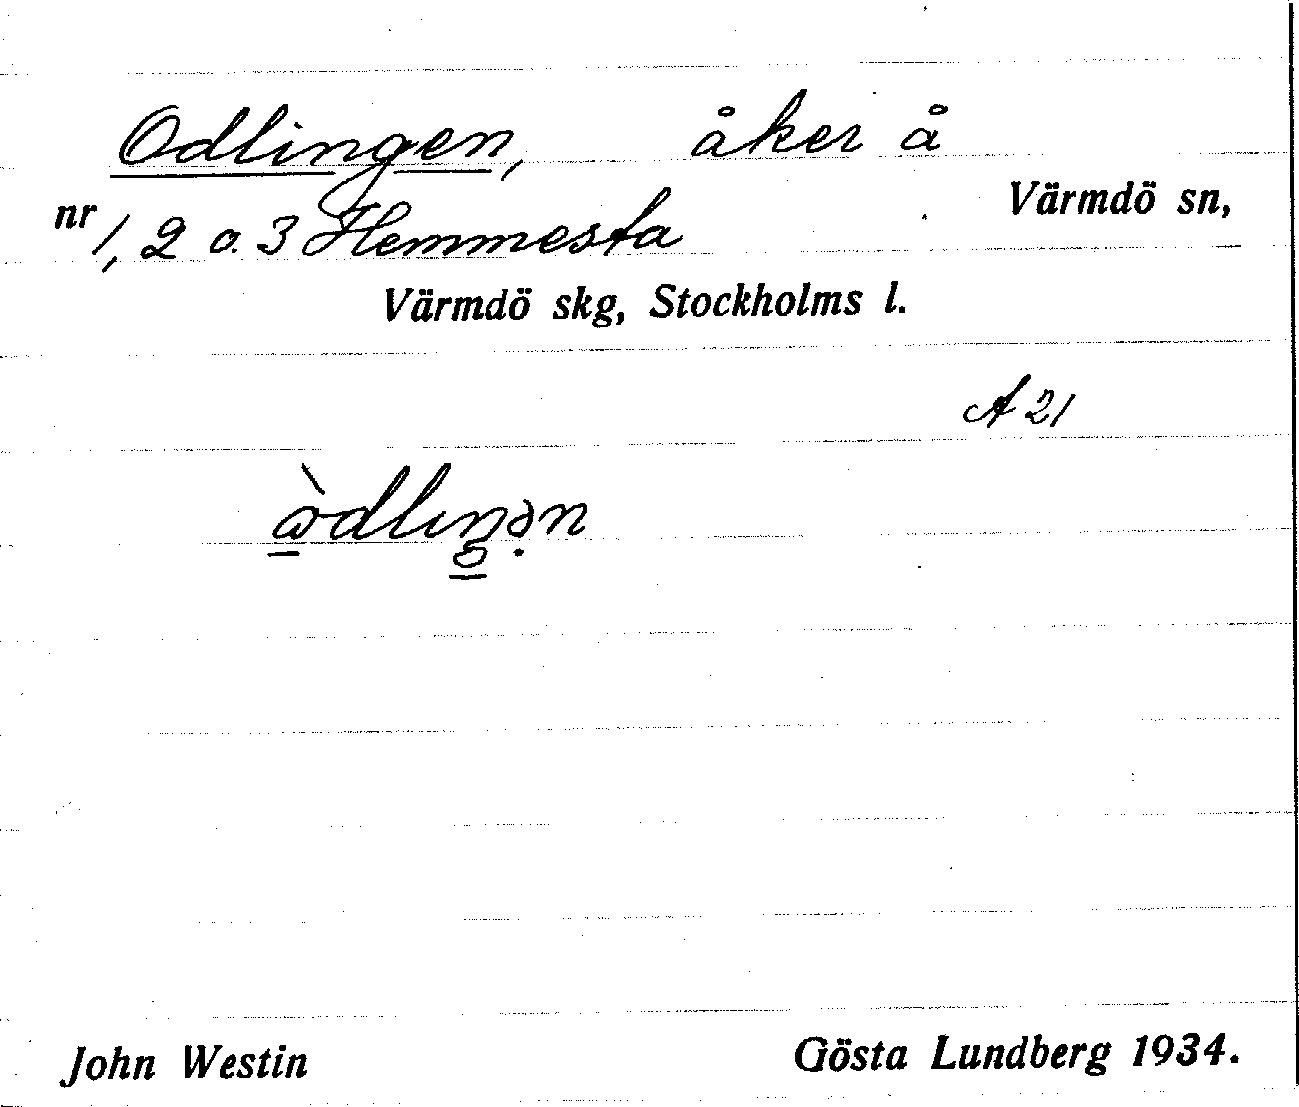 Odlingen, åker å
nr 1, 2 o. 3 Hemmesta Värmdö sn,
Värmdö skg, Stockholms l.
A 21
John Westin Gösta Lundberg 1934.